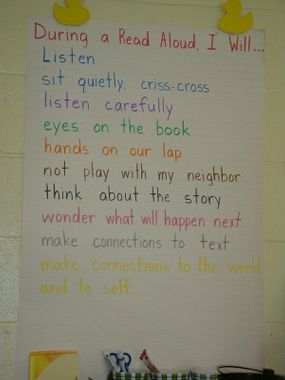 During a Read Aloud, I Will...
Listen
sit quietly. criss-cross
listen carefully
eyes on the book
hands on our lap
not play with my neighbor
think about the story
wonder what will happen next
make connections to text
make connections to the world
and to self.